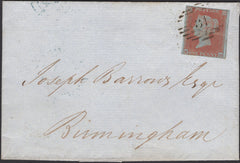 Joseph Barrows Esqr
Birmingham